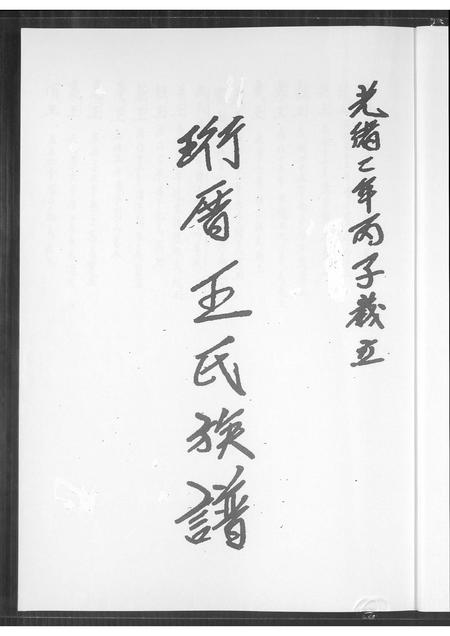 光緒二年丙子歲立
珩厝王氏族譜